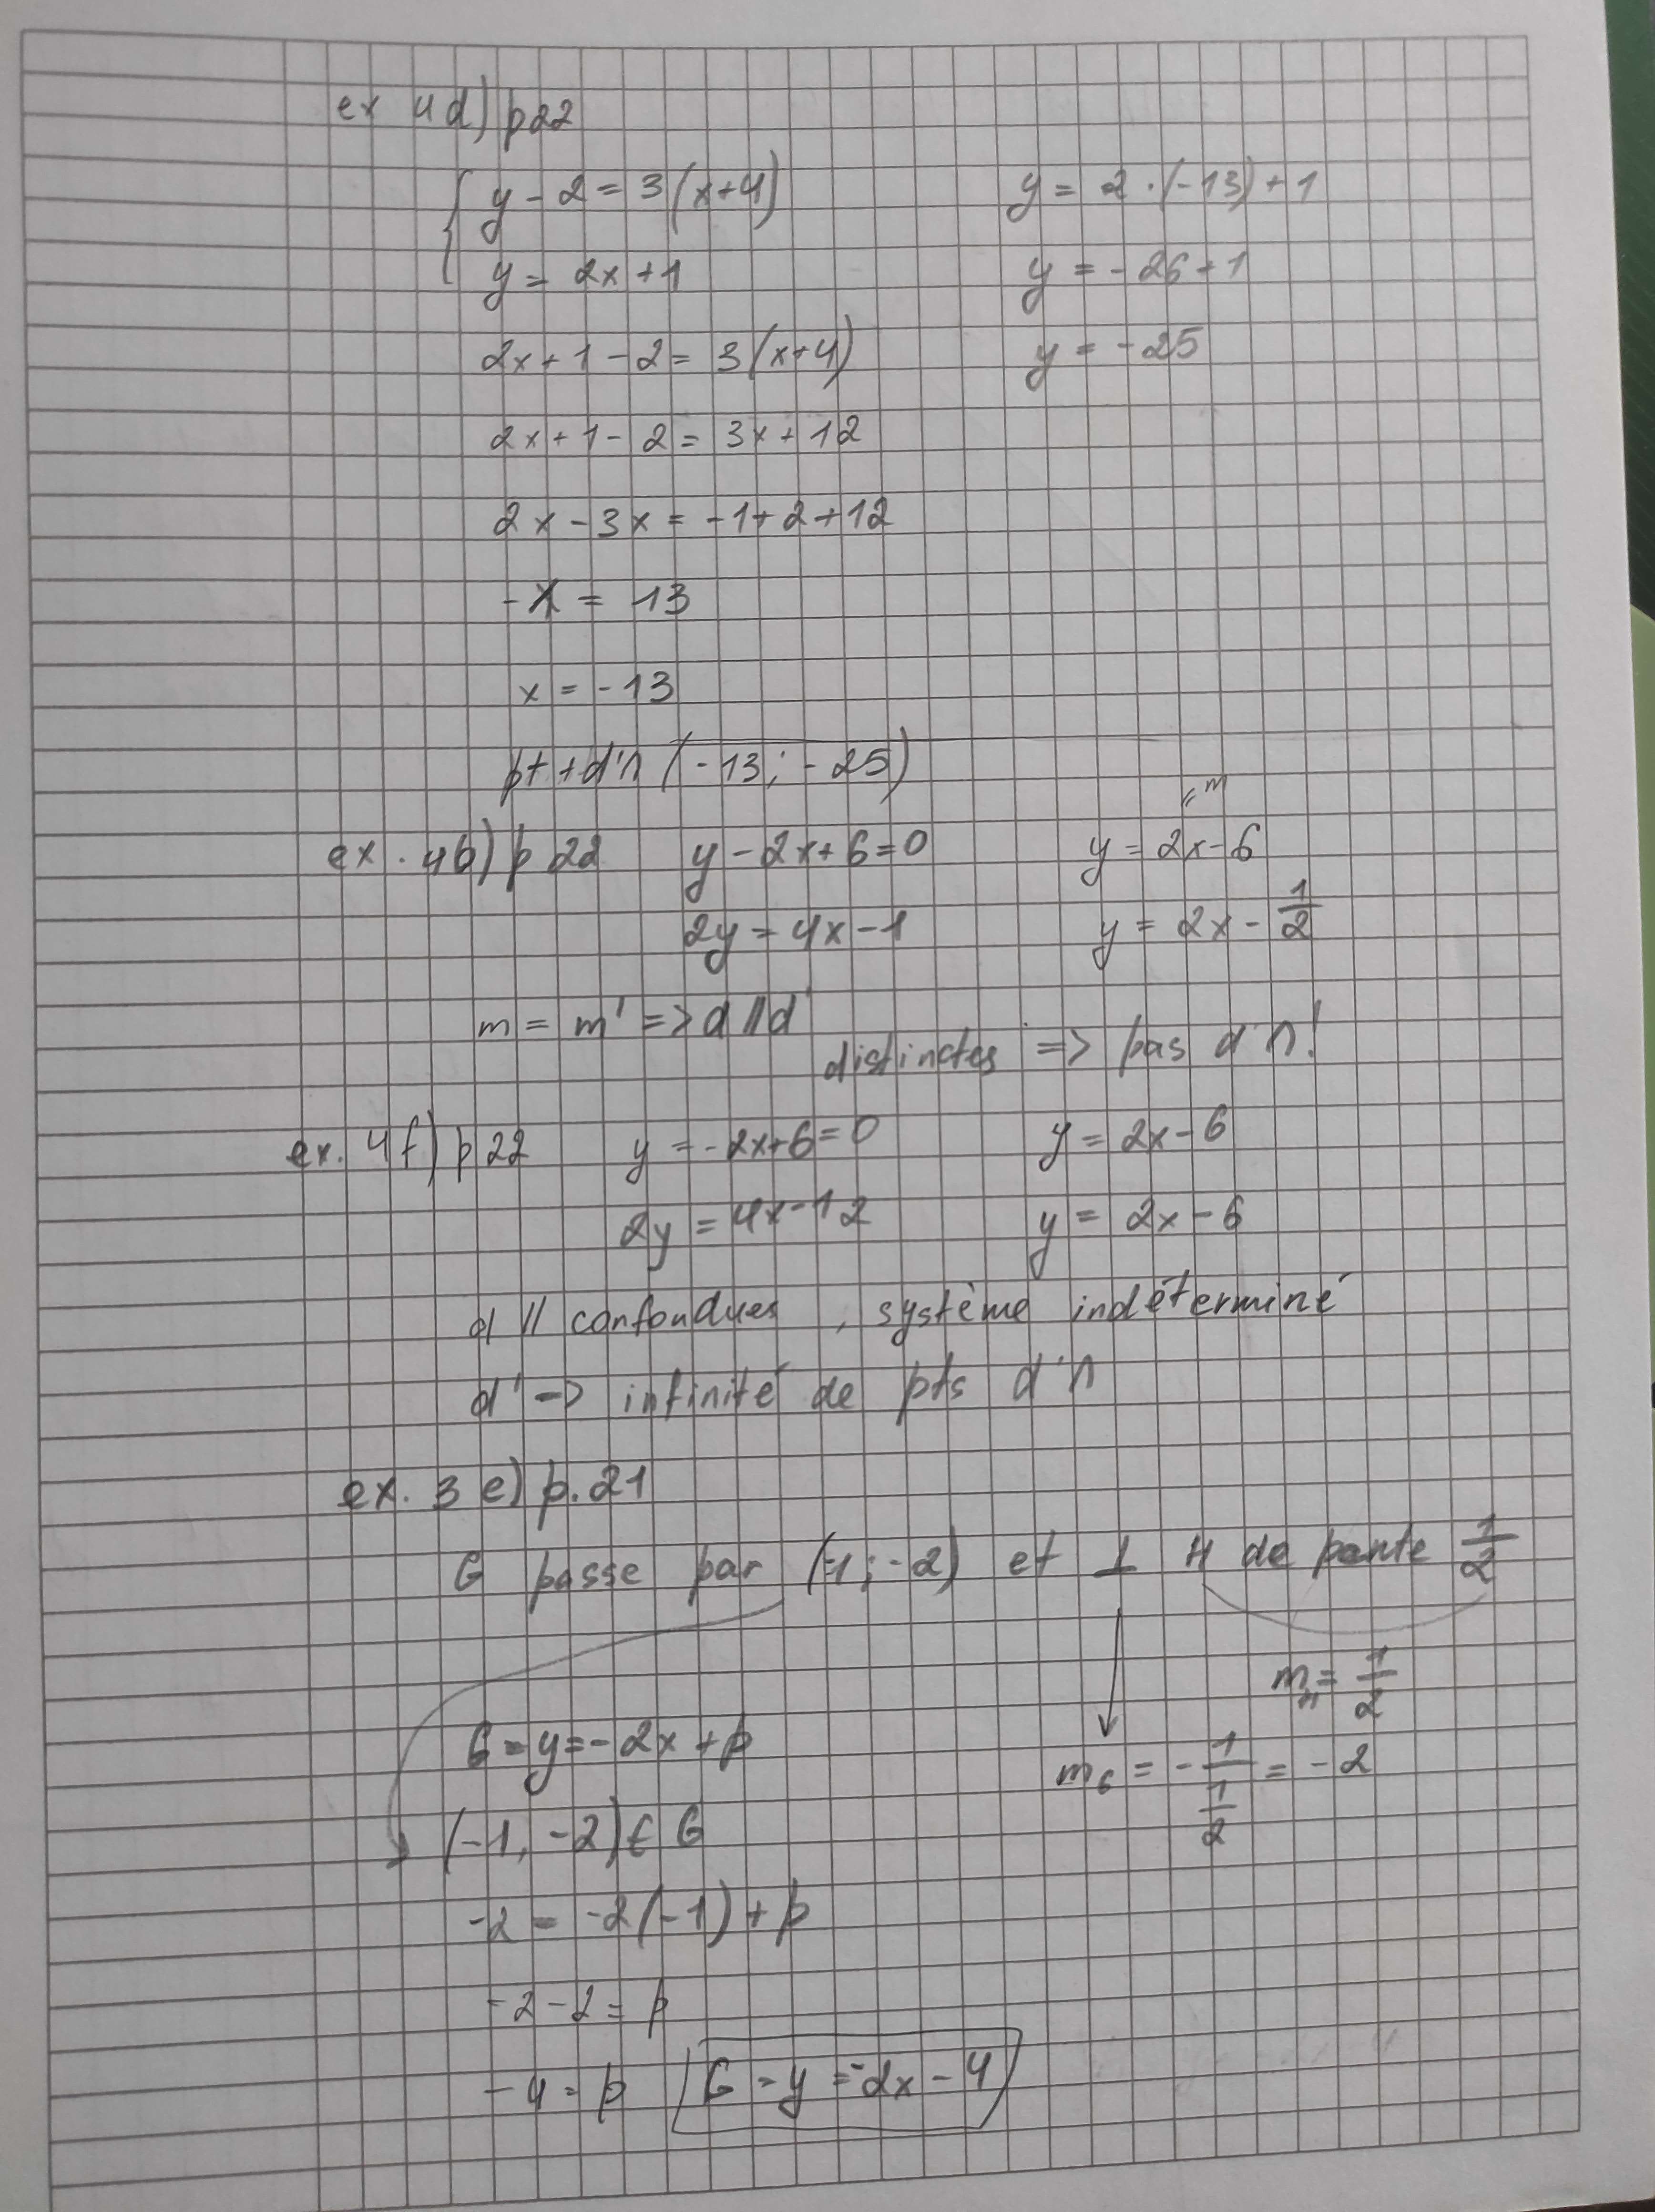 ex 4d) p22
{ y - 2 = 3(x+4)
y = 2x+1
2x+1-2 = 3(x+4)
2x+1-2 = 3x+12
2x-3x = -1+2+12
-x = 13
x = -13
y = 2·(-13)+1
y = -26+1
y = -25
pt +d'∩ (-13; -25)
ex. 4b) p 22 y-2x+6=0 y = 2x-6
= m
2y = 4x-1 y = 2x - 1/2
m = m' => d // d'
distinctes => pas d'∩!
ex. 4f) p 22 y = -2x+6=0 y = 2x-6
2y = 4x-12 y = 2x-6
d // confondues, système indéterminé
d' -> infinité de pts d'∩
ex. 3 e) p.21
G passe par (-1; -2) et ⊥ H de pente 1/2
m_H = 1/2
G = y = -2x + p m_G = - 1/(1/2) = -2
(-1, -2) ∈ G
-2 = -2(-1) + p
-2-2 = p
-4 = p G = y = -2x - 4